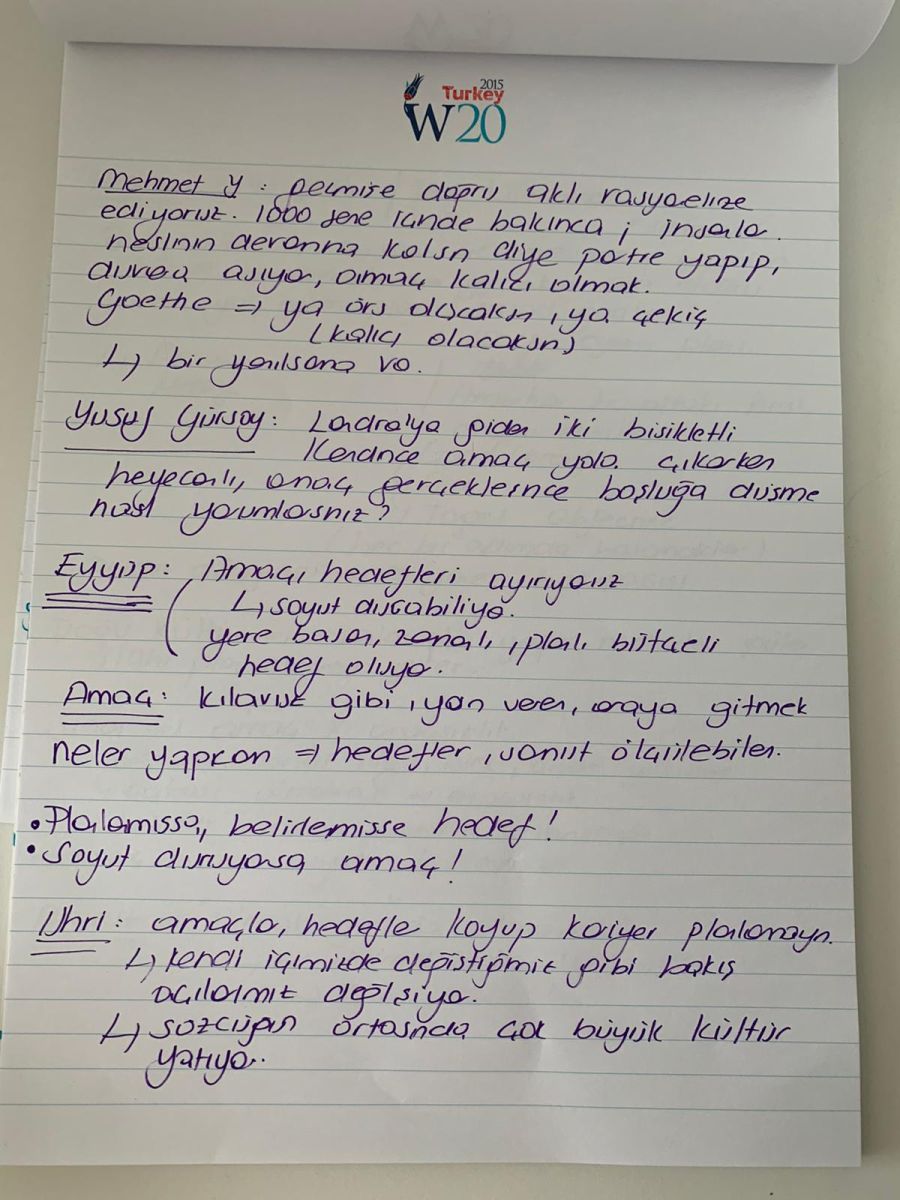 2015
Turkey
W20
Mehmet Y : geçmişe doğru aklı rasyonelize
ediyoruz. 1000 sene içinde bakınca ; insanla
neslinin devamına kalsın diye portre yapıp,
duvara asıyo, amaç kalıcı olmak.
Goethe ⇒ ya örs olacaksın, ya çekiç
(kalıcı olacaksın)
↳ bir yanılsama va.
Yusuf Gürsoy: Londra'ya giden iki bisikletli
Kendince amaç yola çıkarken
heyecanlı, amaç gerçekleşince boşluğa düşme
nasıl yorumlarsınız?
Eyyüp: Amaçı hedefleri ayırıyoruz
↳ soyut durabiliyo.
yere basan, zamanlı, planlı bütçeli
hedef oluyo.
Amaç: kılavuz gibi, yön veren, oraya gitmek
neler yapcan ⇒ hedefler, somut ölçülebilen.
• Planlamışsa, belirlemişse hedef!
• Soyut duruyosa amaç!
Uhri: amaçla, hedefle koyup kariyer planlamayın.
↳ kendi içimizde değiştiğimiz gibi bakış
açılarımız değişiyo.
↳ sözcüğün ortasında çok büyük kültür
yatıyo..